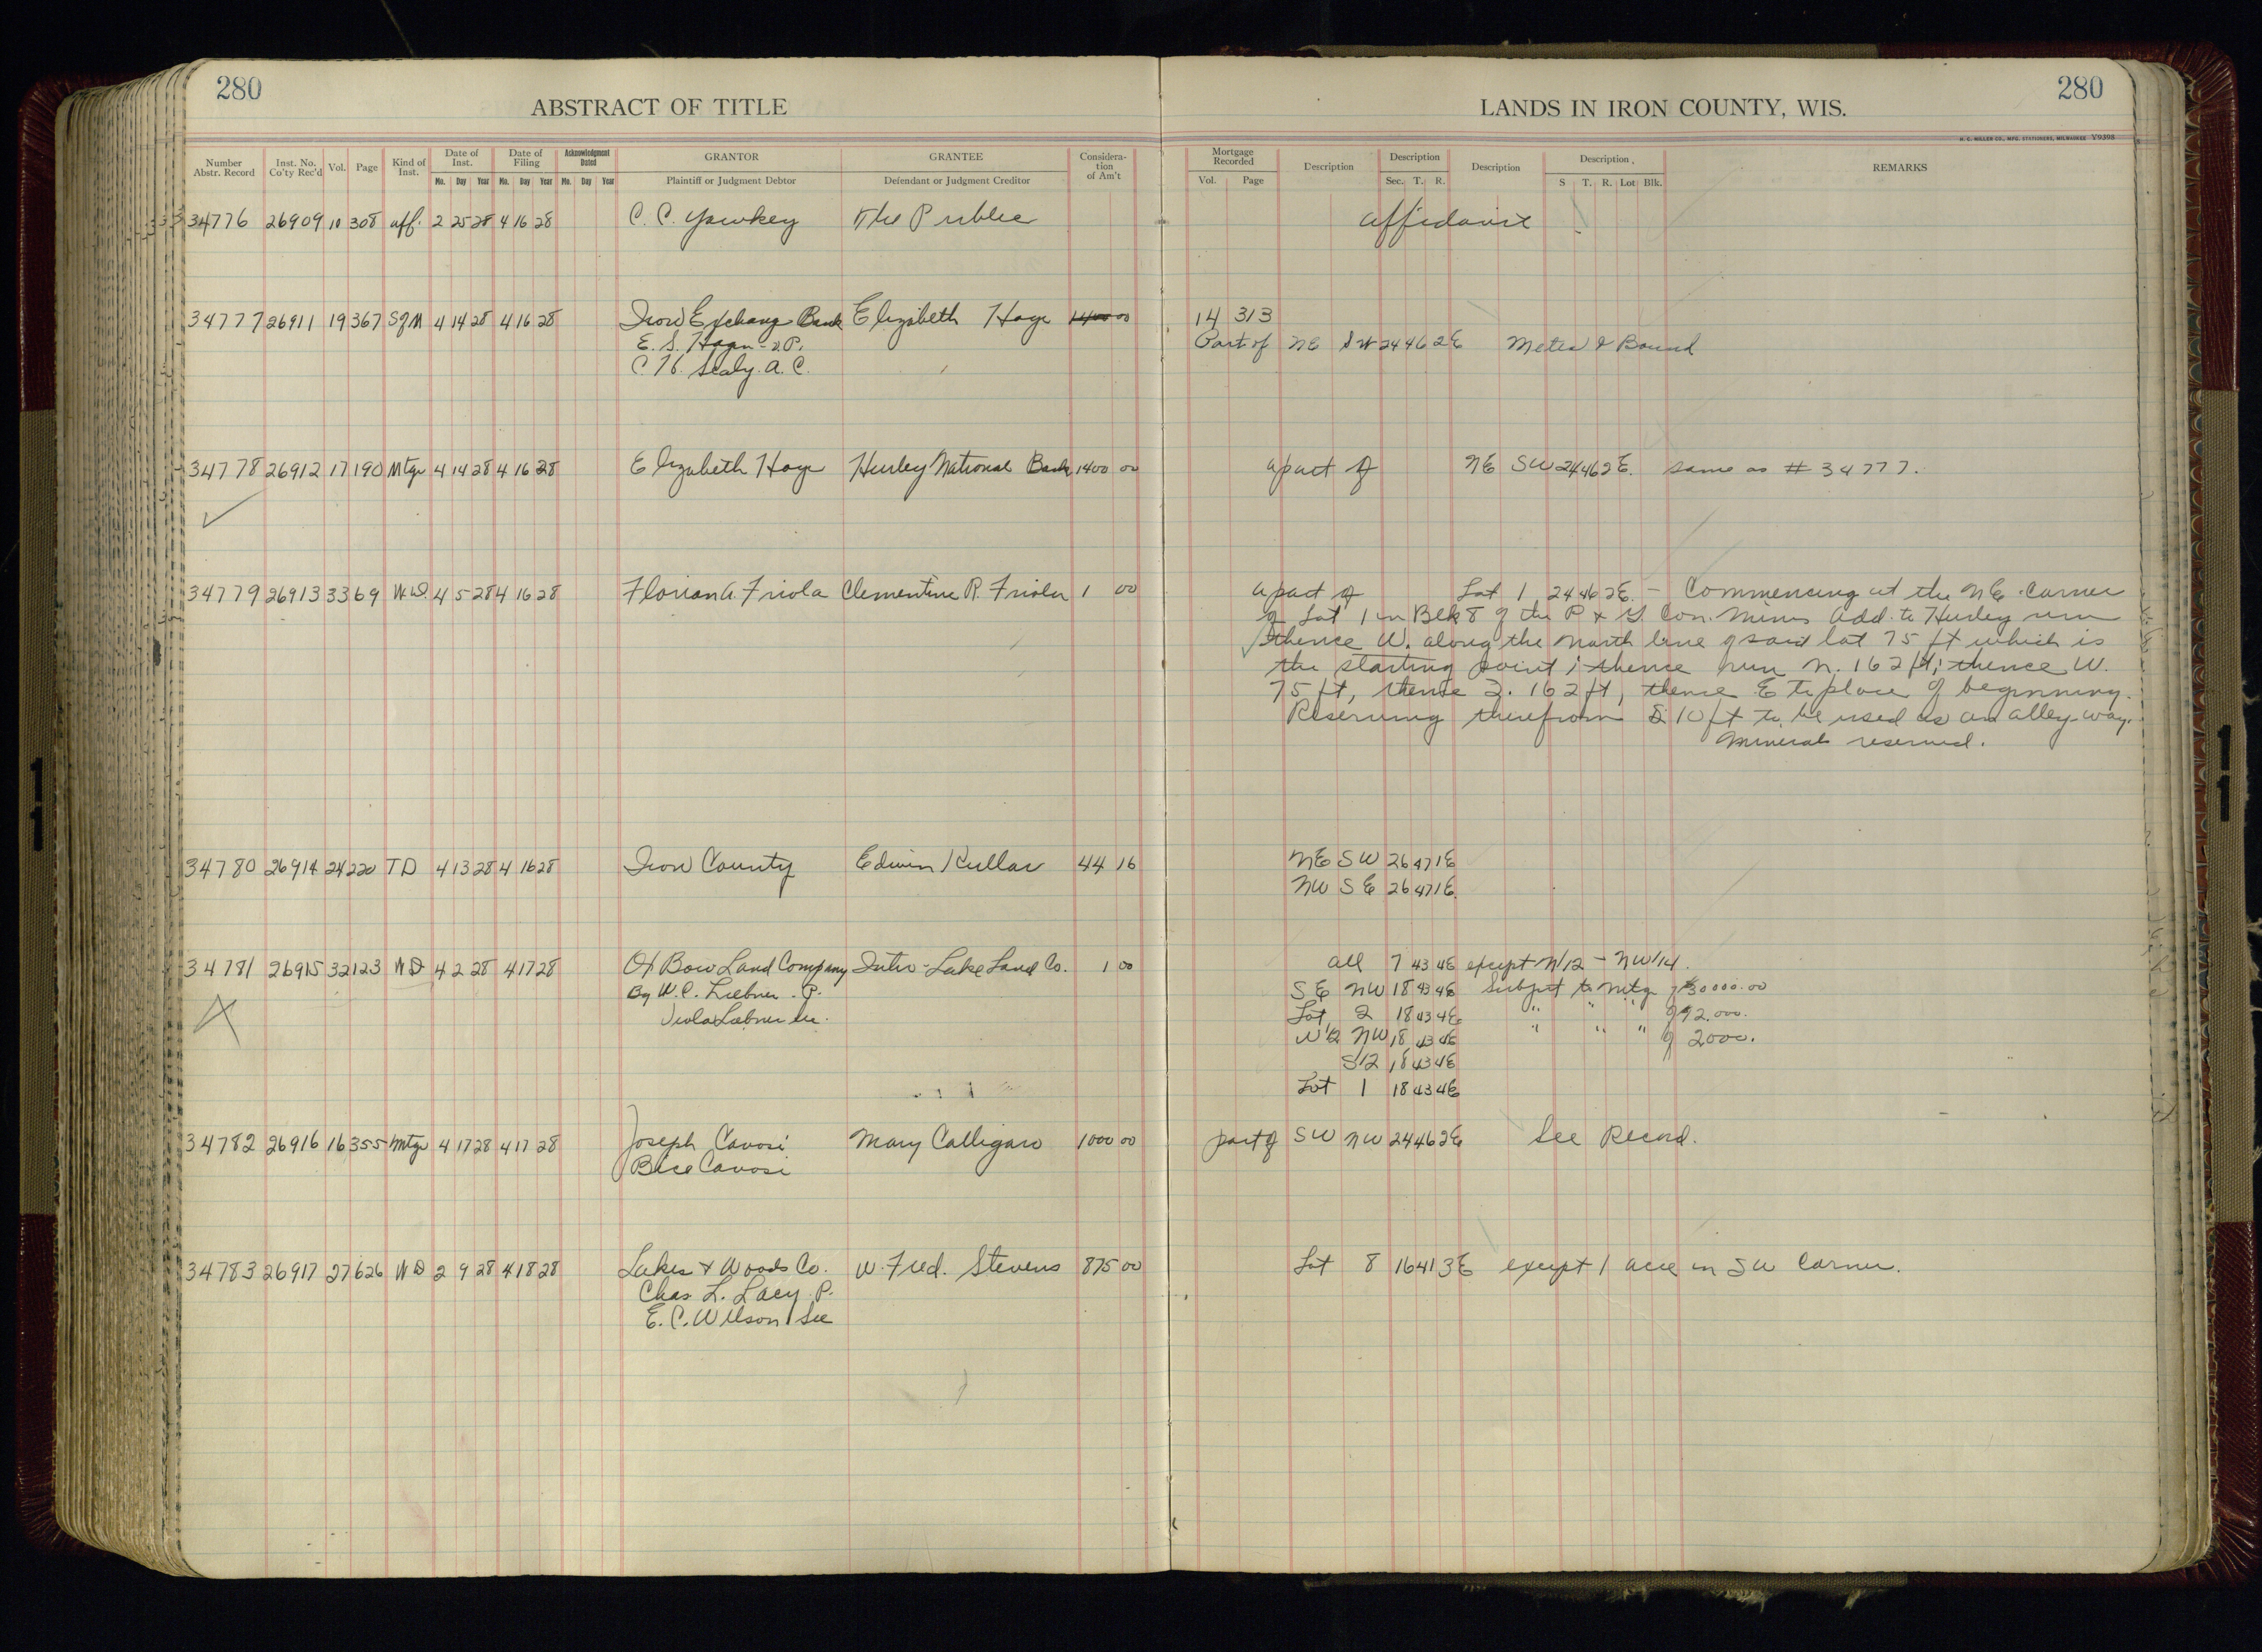 280
ABSTRACT OF TITLE
LANDS IN IRON COUNTY, WIS.
280
H. C. MILLER CO., MFG. STATIONERS, MILWAUKEE Y9398
Number Abstr. Record | Inst. No. Co'ty Rec'd | Vol. | Page | Kind of Inst. | Date of Inst. Mo. Day Year | Date of Filing Mo. Day Year | Acknowledgment Dated Mo. Day Year | GRANTOR Plaintiff or Judgment Debtor | GRANTEE Defendant or Judgment Creditor | Consideration of Am't | Mortgage Recorded Vol. Page | Description | Description Sec. T. R. | Description | Description S T. R. Lot Blk. | REMARKS
34776 26909 10 308 aff. 2 25 28 4 16 28 C. C. Yawkey The Public affidavit
34777 26911 19 367 Sgm 4 14 28 4 16 28 Iron Exchang Bank Elizabeth Hoye 1400 00 14 313
E. S. Hagn - V.P. Part of NE SW 24 46 2E Metes & Bound
C. H. Sealy. A. C.
34778 26912 17 190 Mtge 4 14 28 4 16 28 Elizabeth Hoye Hurley National Bank 1400 00 a part of NE SW 24 46 2E. same as # 34777.
34779 26913 33 69 W.D. 4 5 28 4 16 28 Florian A. Friola Clementine R. Friola 1 00 a part of Lot 1 24 46 2E. - Commencing at the NE. Corner
of Lot 1 in Blk 8 of the P & G. Con. Mines Add. to Hurley run
thence W. along the north line of said lot 75 ft which is
the starting point; thence run N. 162 ft; thence W.
75 ft, thence S. 162 ft, thence E to place of beginning.
Reserving therefrom S 10 ft to be used as an alley-way.
Mineral reserved.
34780 26914 24 220 TD 4 13 28 4 16 28 Iron County Edwin Kullar 44 16 NE SW 26 47 1E
NW SE 26 47 1E.
34781 26915 32 123 WD 4 2 28 4 17 28 Ox Bow Land Company Inter-Lake Land Co. 1 00 all 7 43 4E except N/12 - NW/14.
By W. C. Liebner. P. SE NW 18 43 4E Subject to mtg of $30000.00
Viola Liebner Sec. Lot 2 18 43 4E " " " of 92.000.
N/2 NW 18 43 4E " " " of 2000.
S/2 18 43 4E
Lot 1 18 43 4E
34782 26916 16 355 Mtge 4 17 28 4 17 28 Joseph Cavosi Mary Calligaro 1000 00 part of SW NW 24 46 2E See Record.
Bice Cavosi
34783 26917 27 626 WD 2 9 28 4 18 28 Lakes & Woods Co. W. Fred. Stevens 875 00 Lot 8 16 41 3E except 1 acre in SW Corner.
Chas. L. Lacy P.
E. C. Wilson Sec